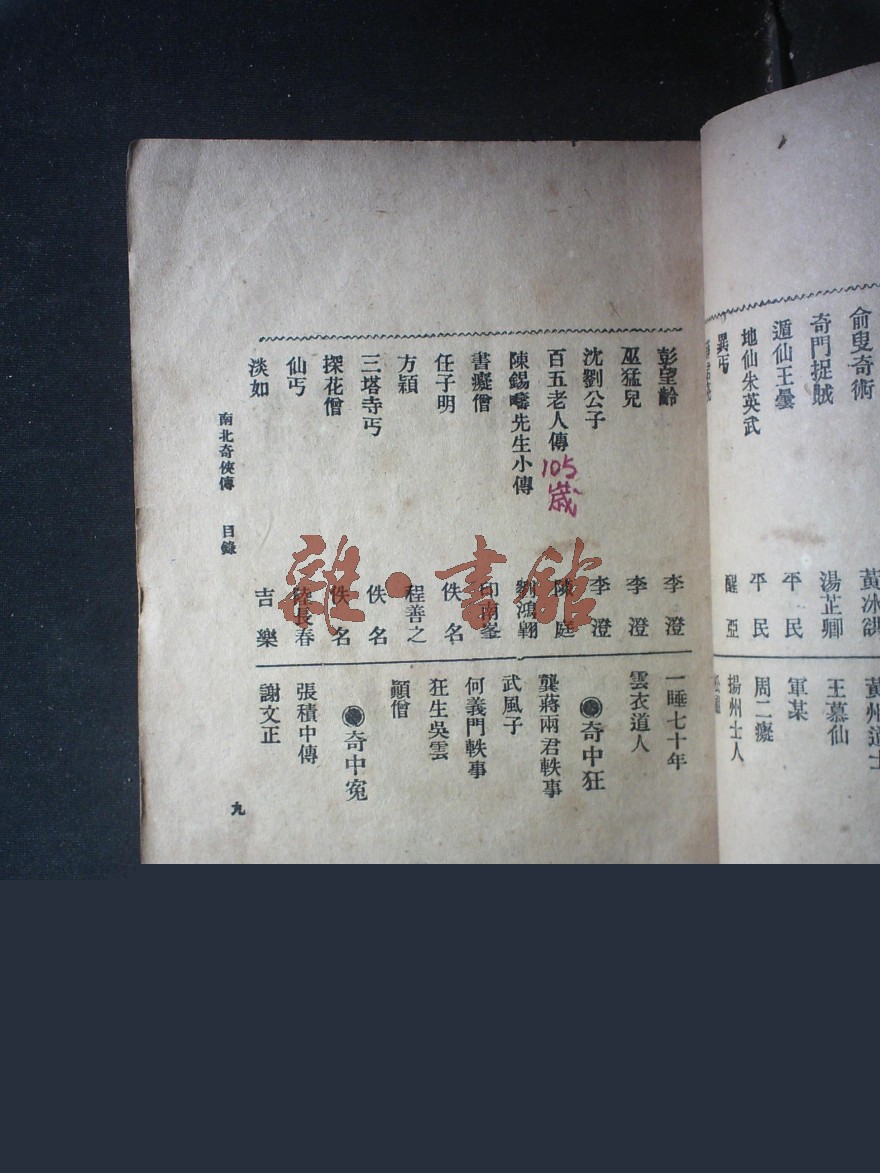 俞叟奇術
奇門捉賊
湯芷卿
遁仙王曇
平民
地仙朱英武
平民
異丐
醒亞
黃州道士
王慕仙
軍某
周二癡
揚州士人
彭望齡
李澄
巫猛兒
李澄
沈劉公子
李澄
百五老人傳
陳庭
105
歲
陳錫疇先生小傳
劉鴻翱
書癡僧
印南峯
任子明
佚名
方穎
程善之
三塔寺丐
佚名
探花僧
佚名
仙丐
陸長春
淡如
吉樂
一睡七十年
雲衣道人
奇中狂
龔蔣兩君軼事
武風子
何義門軼事
狂生吳雲
顚僧
奇中寃
張積中傳
謝文正
南北奇俠傳 目錄
九
雜·書館